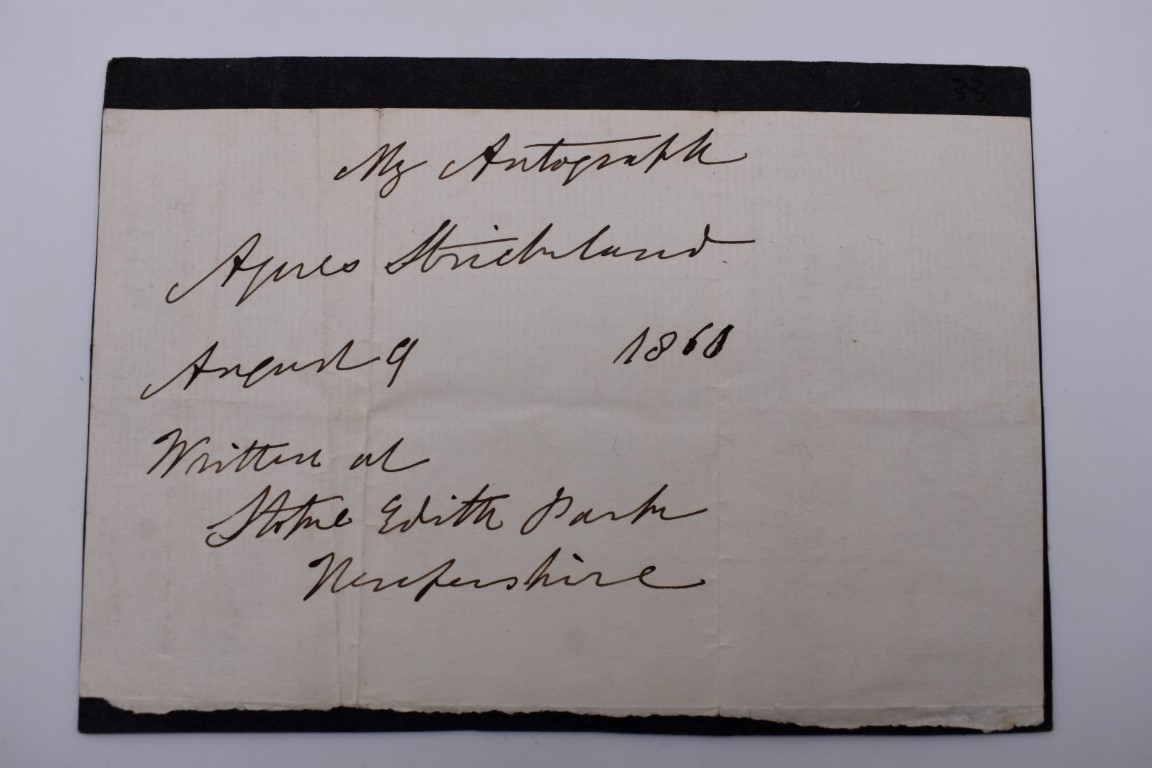 My Autograph
Agnes Strickland
August 9 1861
Written at
Stoke Edith Park
Herefordshire
33